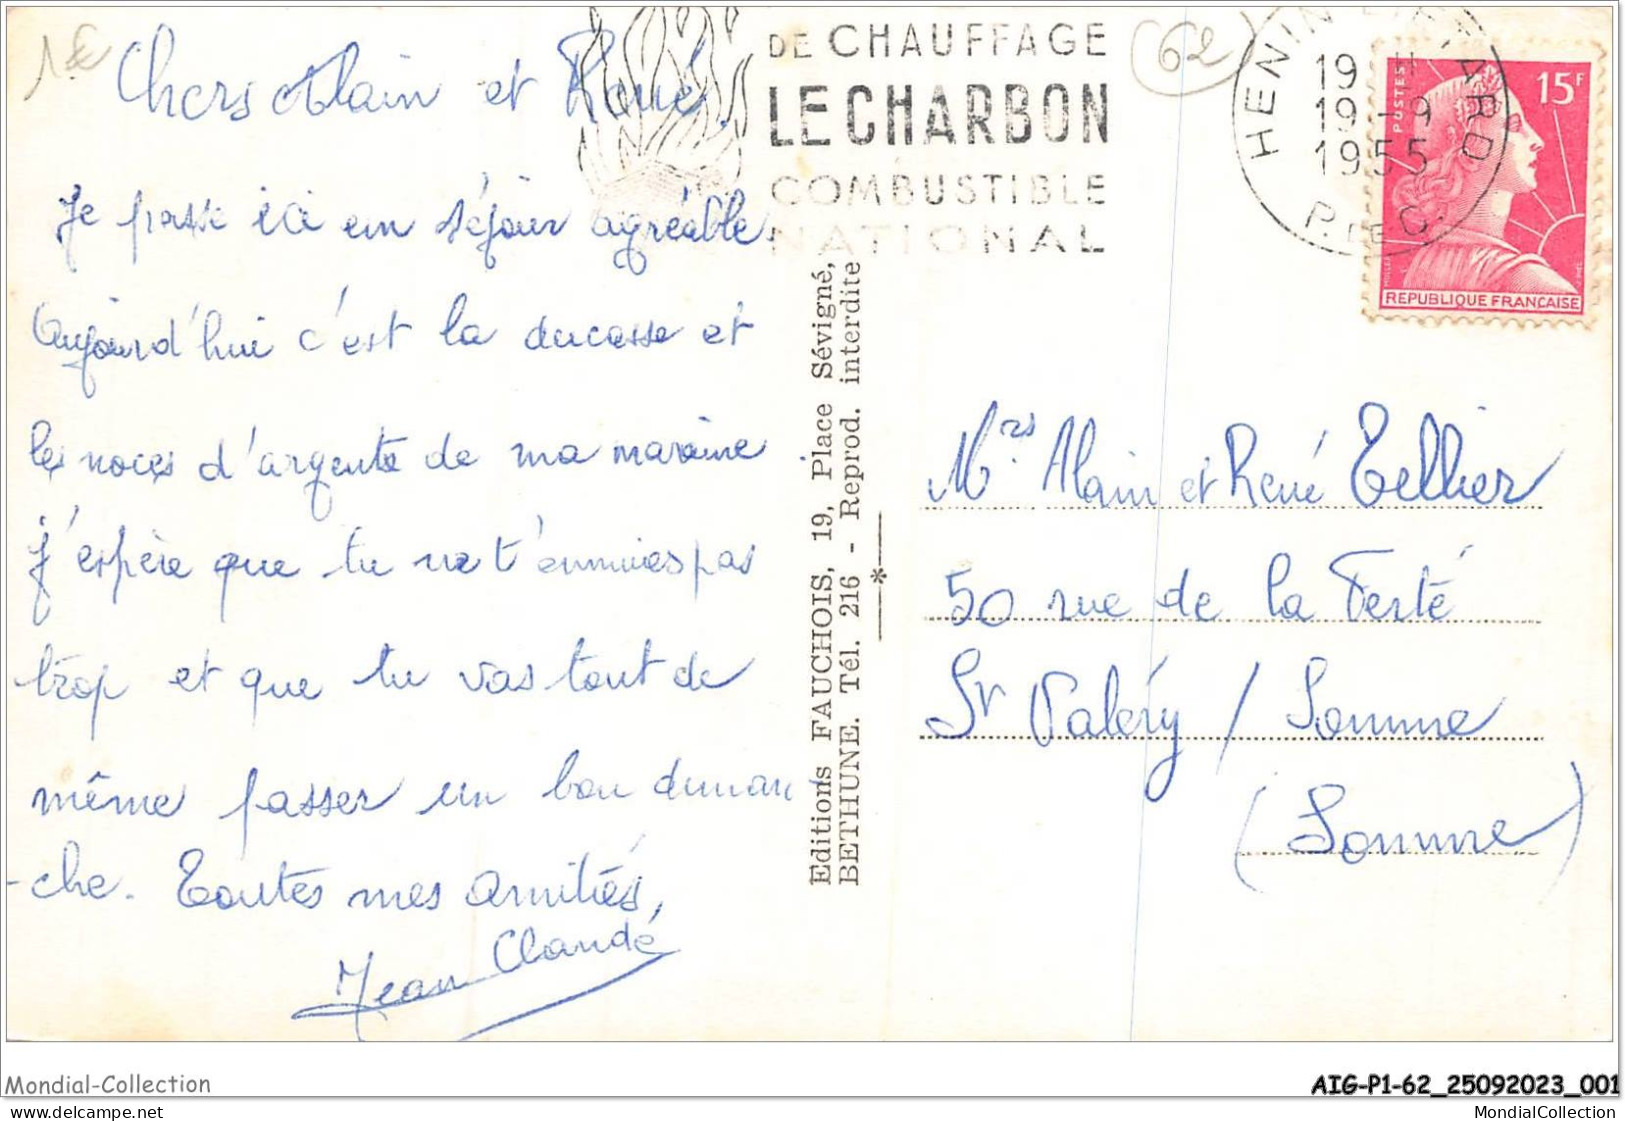 1 €
Chers Alain et René.
Je passe ici un séjour agréable.
Aujourd'hui c'est la ducasse et
les noces d'argents de ma maraine
J'espère que tu ne t'ennuies pas
trop et que tu vas tout de
même passer un bon diman
-che. Toutes mes amitiés,
Jean Claude
DE CHAUFFAGE
LE CHARBON
COMBUSTIBLE
NATIONAL
62
HENIN LIETARD
19 H
19 - 9
1955
P. DE C.
POSTES
15F
REPUBLIQUE FRANCAISE
Editions FAUCHOIS, 19, Place Sévigné,
BETHUNE. Tél. 216 - Reprod. interdite
Mrs Alain et René Tellier
50 rue de la Ferté
St Valéry / Somme
(Somme)
Mondial-Collection
AIG-P1-62_25092023_001
www.delcampe.net
MondialCollection